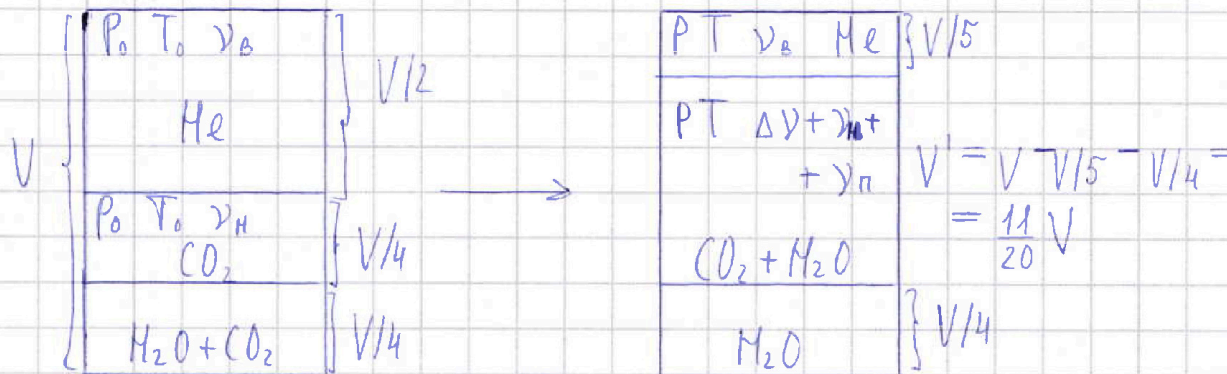 P₀ T₀ ν_в
He
V/2
V
P₀ T₀ ν_н
CO₂
V/4
H₂O + CO₂
V/4
P T ν_в He
V/5
P T Δν + ν_н +
+ ν_п
CO₂ + H₂O
V' = V - V/5 - V/4 =
= 11/20 V
H₂O
V/4